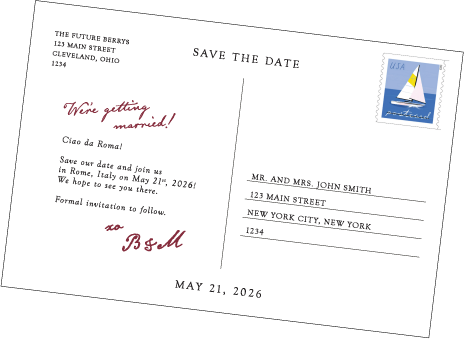 THE FUTURE BERRYS
123 MAIN STREET
CLEVELAND, OHIO
1234
SAVE THE DATE
USA
postcard
We're getting
married!
Ciao da Roma!
Save our date and join us
in Rome, Italy on May 21st, 2026!
We hope to see you there.
Formal invitation to follow.
xo
B&M
MR. AND MRS. JOHN SMITH
123 MAIN STREET
NEW YORK CITY, NEW YORK
1234
MAY 21, 2026